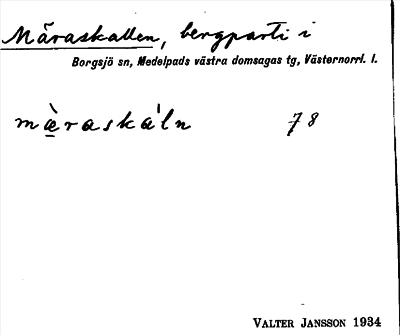 Märaskallen, bergparti i
Borgsjö sn, Medelpads västra domsagas tg, Västernorrl. l.
mæ̀raskáln 78
VALTER JANSSON 1934